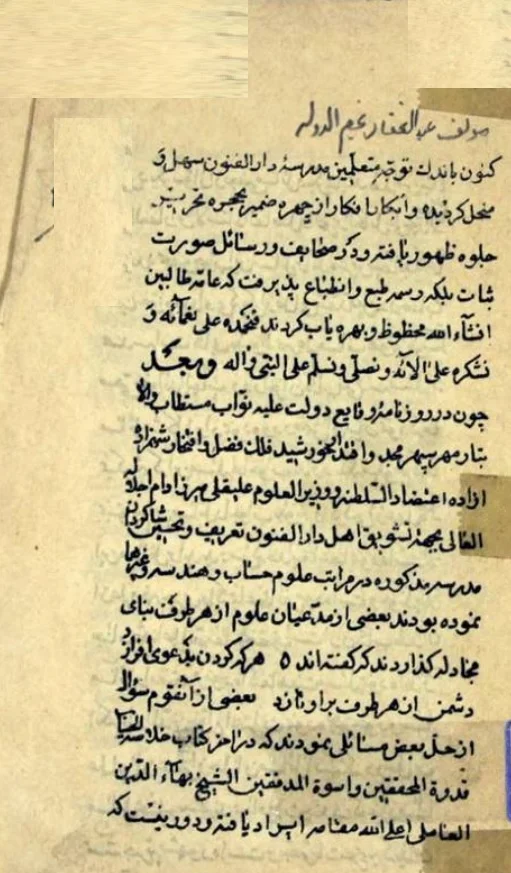 مولف عبدالغفار نجم الدوله
کنون باندك توجّه متعلّمین مدرسهٔ دارالفنون سهل و
منحل کردیده و ابکار افکار از چهره ضمیر بحجره تحریر
جلوه ظهور یافته و در صحایف و رسائل صورت
ثبات بلکه وسمه طبع و انطباع پذیرفت که عامّه طالبین
انشآء الله محظوظ و بهره یاب کردند فنحمده علی نعمآئه و
نشکره علی الآئه و نصلّی و نسلّم علی النبی و اله و بعد
چون در روزنامه وقایع دولت علیه نوّاب مستطاب والا
تبار مهر سپهر مجد و خورشید فلك فضل و افتخار شهزاده
ازاده اعتضاد السّلطنه و وزیر العلوم علیقلی میرزا دام اجلاله
العالی بجهة تشویق اهل دارالفنون تعریف و تحسین شاکردان
مدرسه مذکوره در مراتب علوم حساب و هندسه و غیرها
نموده بودند بعضی از مدّعیان علوم از هر طرف بنای
مجادله کذاردند که کفته اند ه هر که کردن بدعوی افرازد
دشمن از هر طرف بر او تازد بعضی از آنقوم سؤال
از حلّ بعض مسائلی نمودند که در اخر کتاب خلاصه
قدوة المحققین و اسوة المدققین الشیخ بهآء الدّین
العاملی اعلی الله مقامه ایراد یافته و دور نیست که